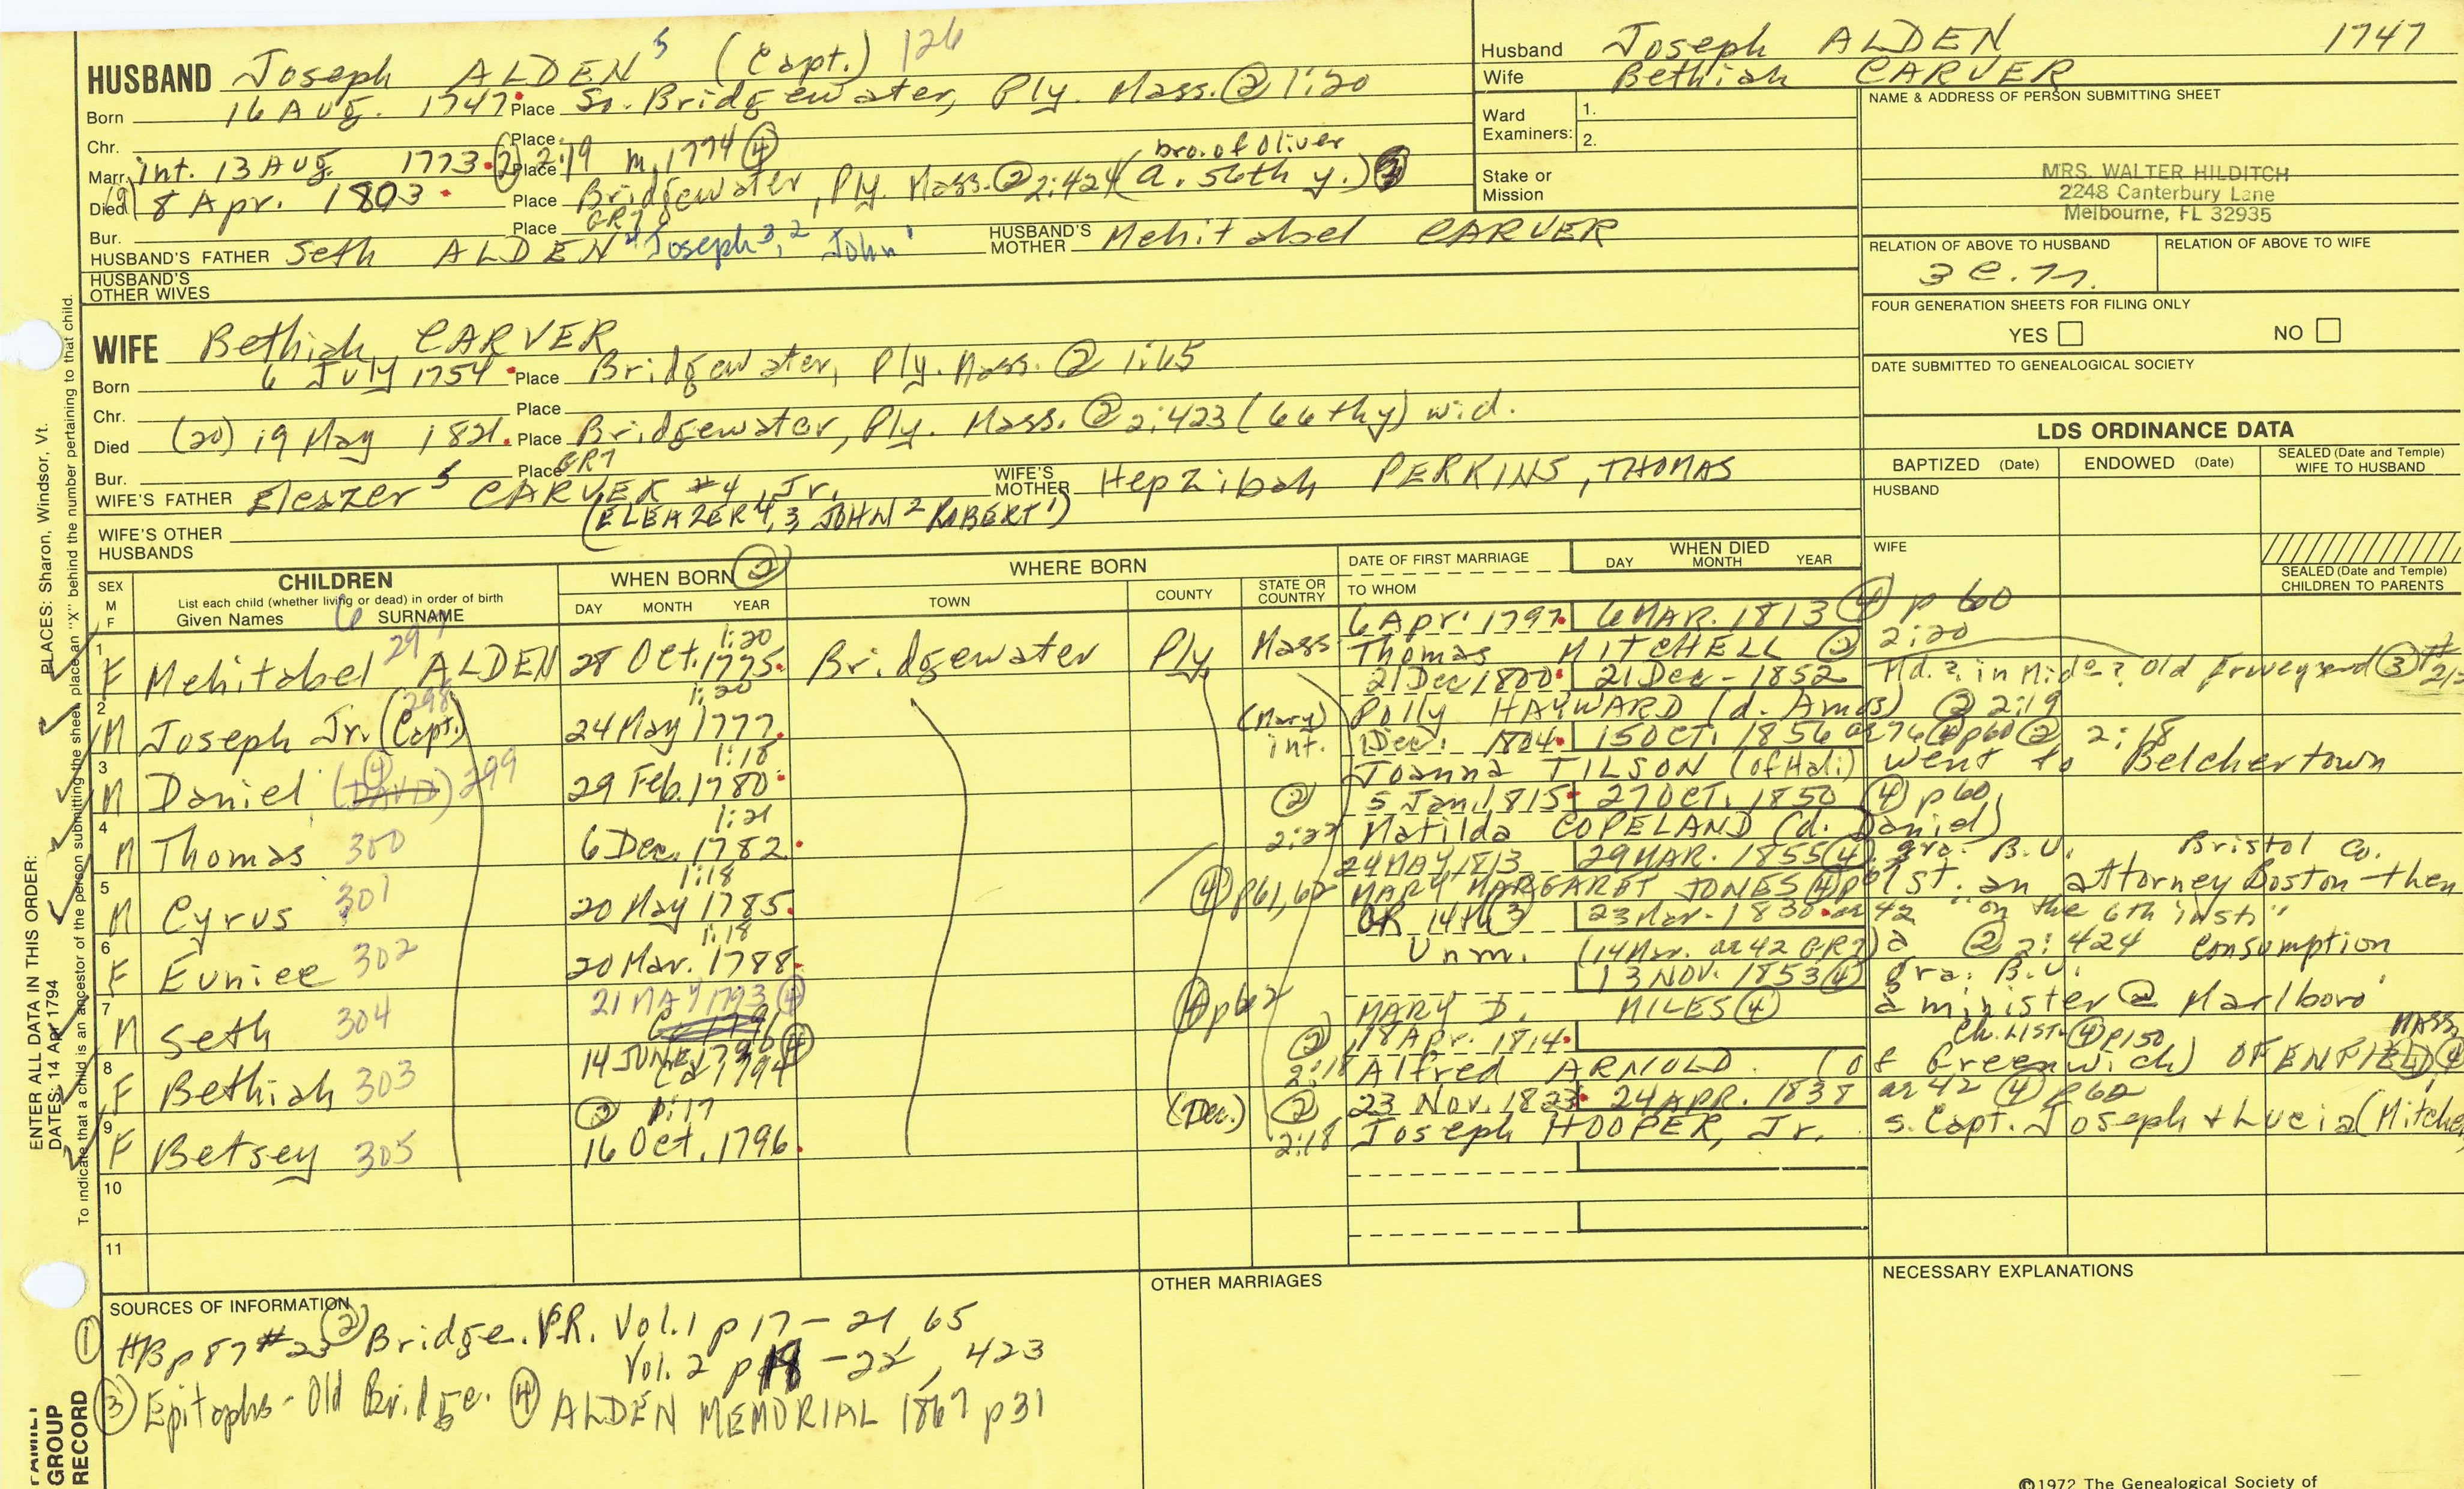 HUSBAND Joseph ALDEN 5 (Capt.) 126
Born 16 Aug. 1747 Place So. Bridgewater, Ply. Mass. @ 1:20
Chr. Place
Marr. int. 13 Aug. 1773 (2) Place 2:19 m. 1774 (4)
bro. of Oliver
Died (9) 8 Apr. 1803 Place Bridgewater, Ply. Mass. @ 2:424 (a. 56th y.) (3)
Bur. Place GR7
HUSBAND'S FATHER Seth ALDEN 4 Joseph 3, 2 John 1 HUSBAND'S MOTHER Mehitabel CARVER
HUSBAND'S OTHER WIVES
Husband Joseph ALDEN 1747
Wife Bethiah CARVER
Ward Examiners: 1.
2.
Stake or Mission
NAME & ADDRESS OF PERSON SUBMITTING SHEET
MRS. WALTER HILDITCH
2248 Canterbury Lane
Melbourne, FL 32935
RELATION OF ABOVE TO HUSBAND RELATION OF ABOVE TO WIFE
FOUR GENERATION SHEETS FOR FILING ONLY
YES NO
DATE SUBMITTED TO GENEALOGICAL SOCIETY
WIFE Bethiah CARVER
Born 6 July 1754 Place Bridgewater, Ply. Mass. @ 1:65
Chr. Place
Died (20) 19 May 1821. Place Bridgewater, Ply. Mass. @ 2:423 (66th y) wid.
Bur. Place GR7
WIFE'S FATHER Eleazer 5 CARVER #4, Jr. WIFE'S MOTHER Hepzibah PERKINS, THOMAS
(ELEAZER 4, 3 JOHN 2 ROBERT 1)
WIFE'S OTHER HUSBANDS
LDS ORDINANCE DATA
BAPTIZED (Date) ENDOWED (Date) SEALED (Date and Temple) WIFE TO HUSBAND
HUSBAND
WIFE
SEALED (Date and Temple) CHILDREN TO PARENTS
SEX M F
CHILDREN
List each child (whether living or dead) in order of birth
Given Names 6 SURNAME
WHEN BORN (2)
DAY MONTH YEAR
WHERE BORN
TOWN COUNTY STATE OR COUNTRY
DATE OF FIRST MARRIAGE
TO WHOM
WHEN DIED
DAY MONTH YEAR
6 Apr. 1797. 6 MAR. 1813 (4) p 60
1 F Mehitabel 297 ALDEN 28 Oct. 1775. 1:20 Bridgewater Ply. Mass Thomas MITCHELL (2) 2:20
21 Dec 1800. 21 Dec - 1852
2 M Joseph Jr. (Capt.) 298 24 May 1777. 1:20 (Mary) Polly HAYWARD (d. Amos) (2) 2:19
int. 1 Dec. 1804. 15 OCT. 1856 ae 76 (4) p60 (2) 2:18
3 M Daniel (DAVID) (4) 299 29 Feb. 1780. 1:18 Joanna TILSON (of Hali) went to Belchertown
(2) 5 Jan. 1815. 27 OCT. 1850 (4) p 60
4 M Thomas 300 6 Dec. 1782. 1:21 2:22 Matilda COPELAND (d. Daniel)
24 MAY 1813 29 MAR. 1855 (4) gra. B.U. Bristol Co.
5 M Cyrus 301 20 May 1785. 1:18 (4) p61, 62 MARY MARGARET JONES (4) p61 st. an attorney Boston then
OR 14th (3) 23 Mar. 1830. ae 42 "on the 6th inst."
6 F Eunice 302 20 Mar. 1788. 1:18 Unm. (14 Mar. ae 42 GR7) (2) 2:424 Consumption
13 NOV. 1853 (4) gra. B.U.
7 M Seth 304 21 MAY 1793 (4) (4) p62 MARY D. MILES (4) a minister @ Marlboro
(2) 18 Apr. 1814. Ch. LIST (4) p150 MASS.
8 F Bethiah 303 14 JUNE (4) ca 1794 2:18 Alfred ARNOLD (of Greenwich) OF ENFIELD (4)
(Dec.) (2) 23 Nov. 1823. 24 APR. 1838 ae 42 (4) p 62
9 F Betsey 305 (2) 1:17 16 Oct. 1796. 2:18 Joseph HOOPER, Jr. s. Capt. Joseph + Lucia (Mitche
10
11
SOURCES OF INFORMATION
(1) HB p 87 #23 (2) Bridge. V.R. Vol. 1 p 17 - 21, 65
Vol. 2 p 18 - 22, 423
(3) Epitaphs - Old Bridge. (4) ALDEN MEMORIAL 1867 p 31
OTHER MARRIAGES
NECESSARY EXPLANATIONS
©1972 The Genealogical Society of
ENTER ALL DATA IN THIS ORDER:
DATES: 14 Apr 1794 PLACES: Sharon, Windsor, Vt.
To indicate that a child is an ancestor of the person submitting the sheet, place an "X" behind the number pertaining to that child.
FAMILY GROUP RECORD